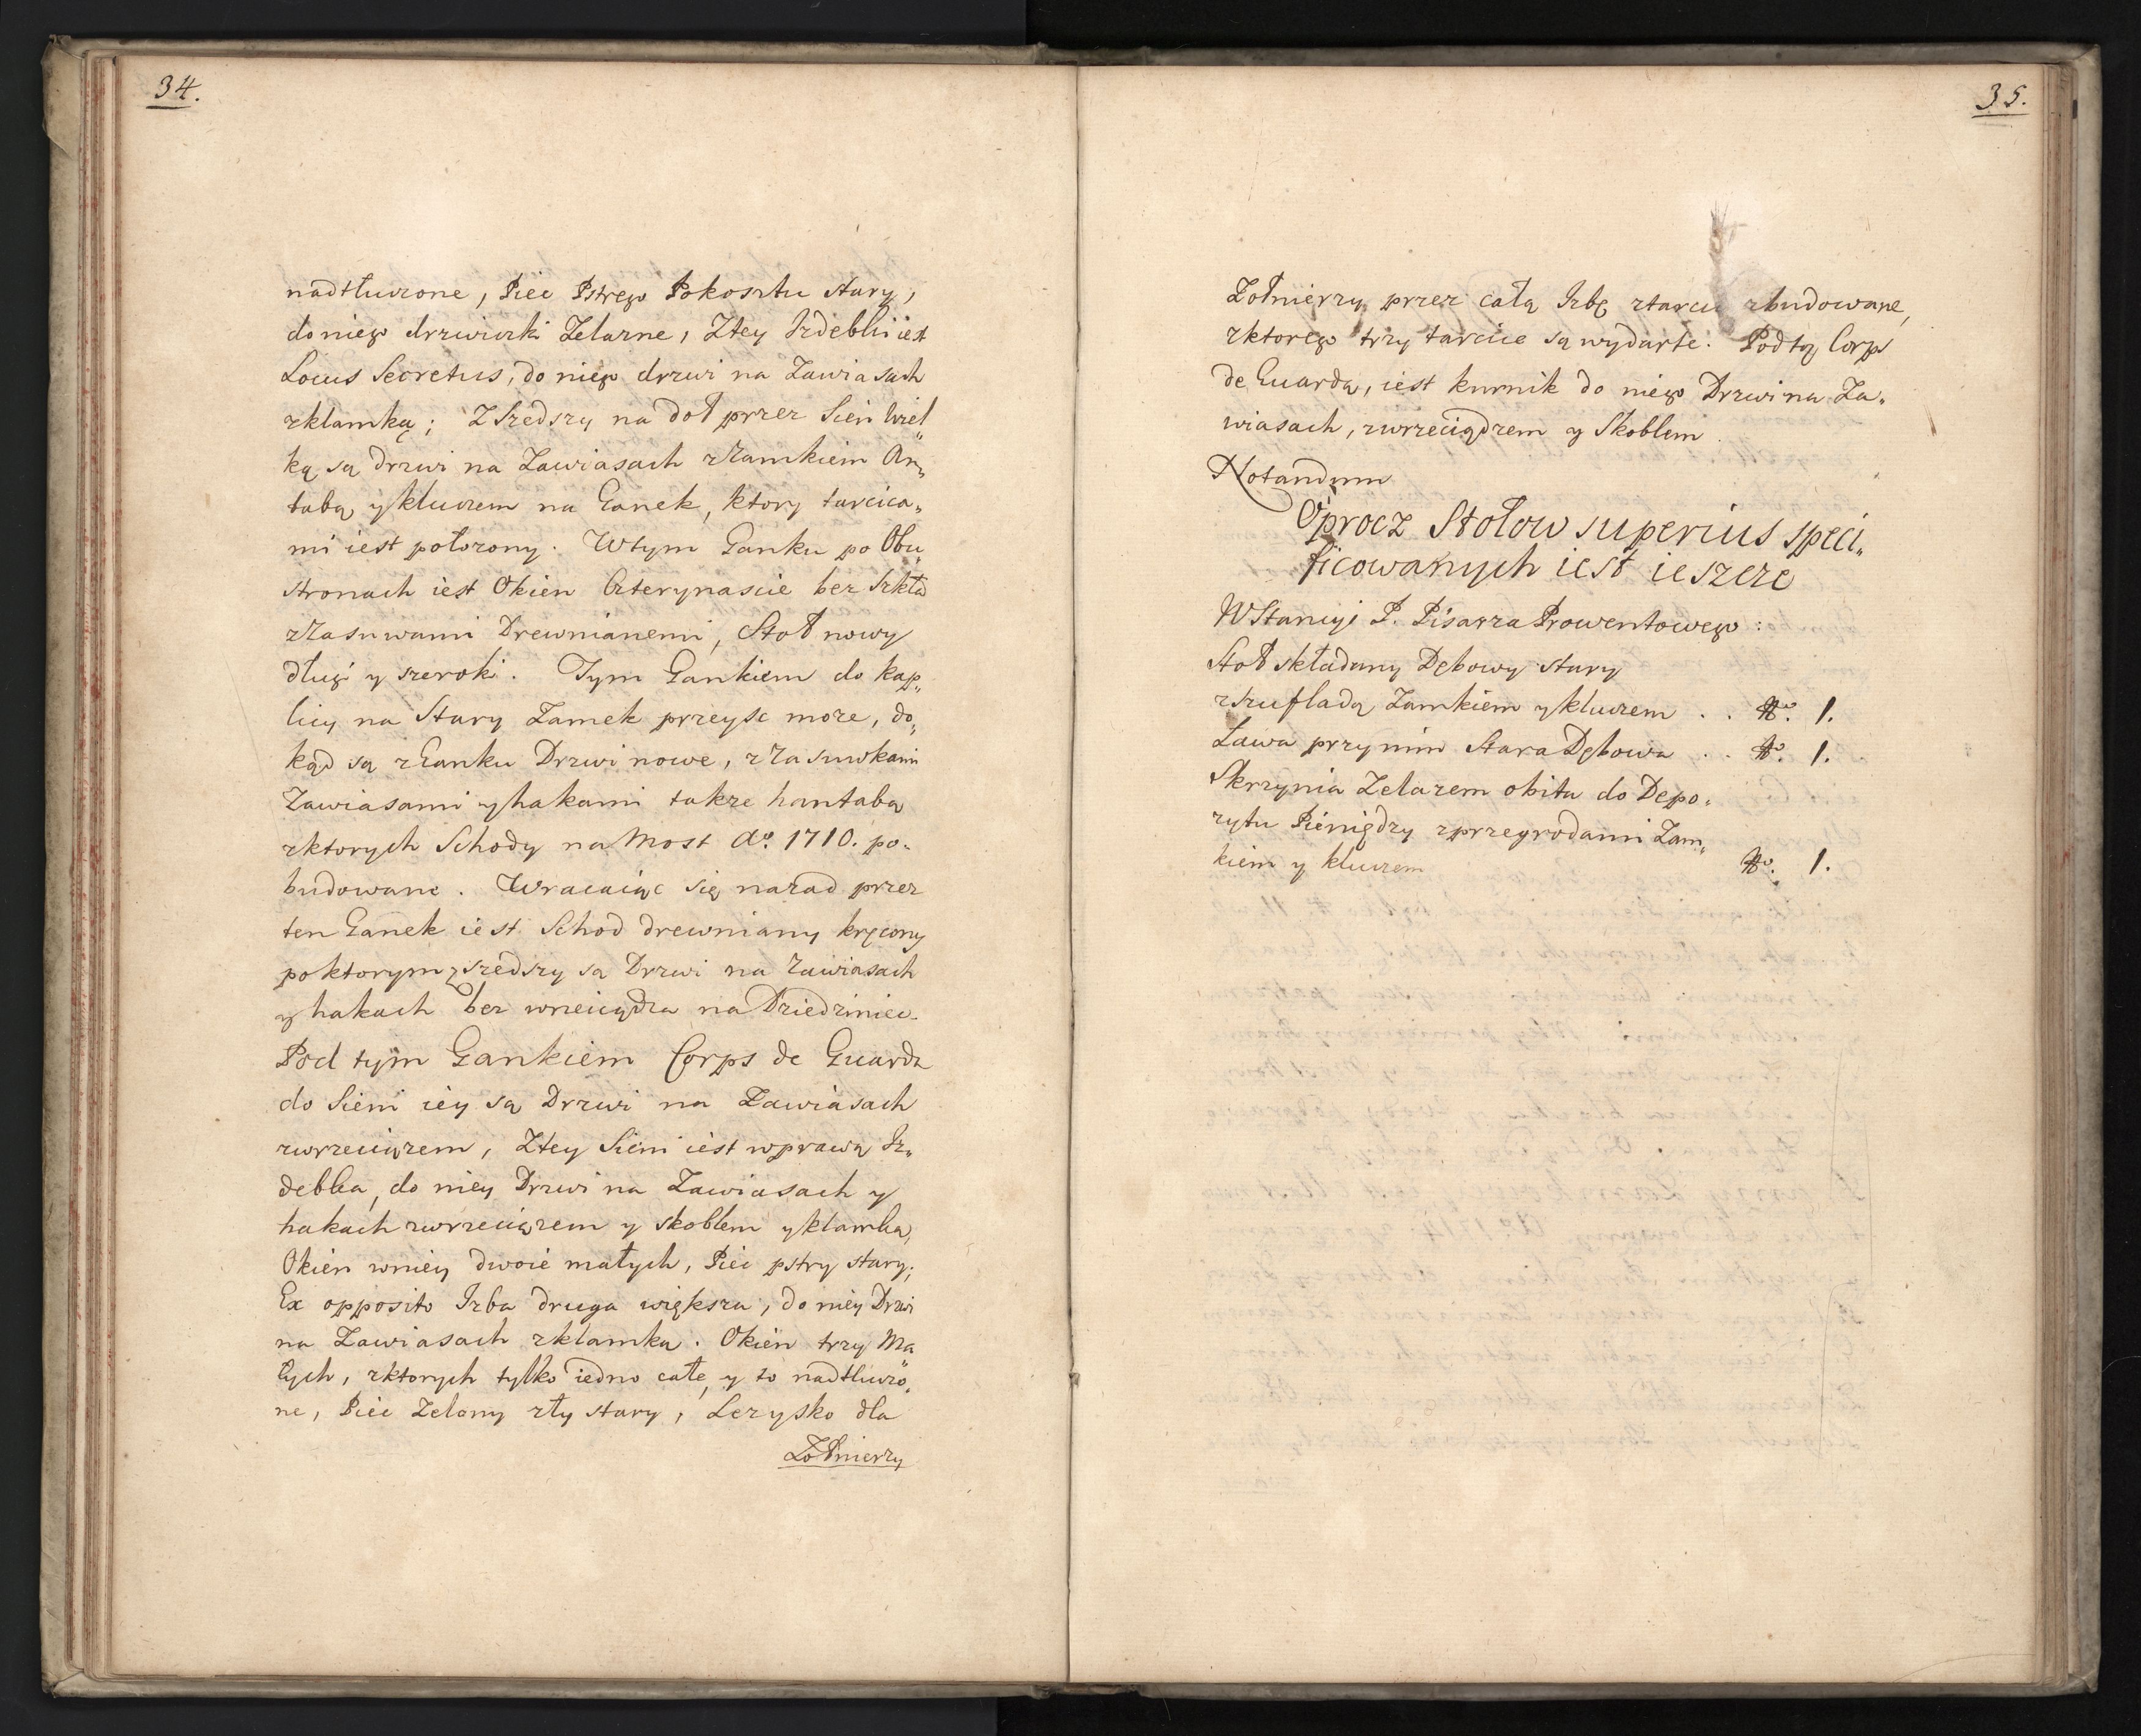 34.
nadtłuczone, Piec Pstrego Pokosztu stary,
do niego drzwiczki Zelazne, Ztey Izdebki iest
Locus Secretus, do niego drzwi na Zawiasach
zklamką; ZSzedszy na doł przez Sień Wiel„
ką są drzwi na Zawiasach zZamkiem An„
tabą y kluczem na Ganek, ktory tarcica„
mi iest położony. Wtym Ganku po Obu
stronach iest Okien Czterynascie bez Szkła
zZasuwami Drewnianemi, Stoł nowy
długi y szeroki. Tym Gankiem do kap„
licy na Stary Zamek przeysc może, do„
kąd są zGanku Drzwi nowe, zZasuwkami
Zawiasami y hakami takze hantabą
zktorych Schody na Most Aº. 1710. po„
budowane. Wracaiąc się nazad przez
ten Ganek iest Schod drewniany kręcony
po ktorym zszedszy są Drzwi na Zawiasach
y hakach bez wrzeciądza na Dziedziniec.
Pod tym Gankiem Corps de Guarda
do Sieni iey są Drzwi na Zawiasach
zwrzeciązem, Ztey Sieni iest wprawą Iz„
debka, do niey Drzwi na Zawiasach y
hakach zwrzeciązem y skoblem y klamką,
Okien wniey dwoie małych, Piec pstry stary;
Ex opposito Izba druga większa, do niey Drzwi
na Zawiasach zklamką. Okien trzy Ma„
łych, zktorych tylko iedno całe, y to nadtłuczo„
ne, Piec Zelony zły stary, Lezysko dla
Zołnierzy
35.
Zołnierzy przez całą Izbę ztarcic zbudowane,
zktorego trzy tarcice są wydarte. Pod tą Corps
de Guardą, iest kurnik do niego Drzwi na Za„
wiasach, zwrzeciądzem y Skoblem.
Notandum
Oprocz Stołow superius speci„
ficowanych iest ieszcze
WStancyi P. Pisarza Prowentowego:
Stoł składany Dębowy stary
zszufladą Zamkiem y kluczem . . Nº. 1.
Ława przy nim Stara Dębowa . . Nº. 1.
Skrzynia Zelazem obita do Depo„
zytu Pieniędzy zprzegrodami Zam„
kiem y kluczem Nº. 1.